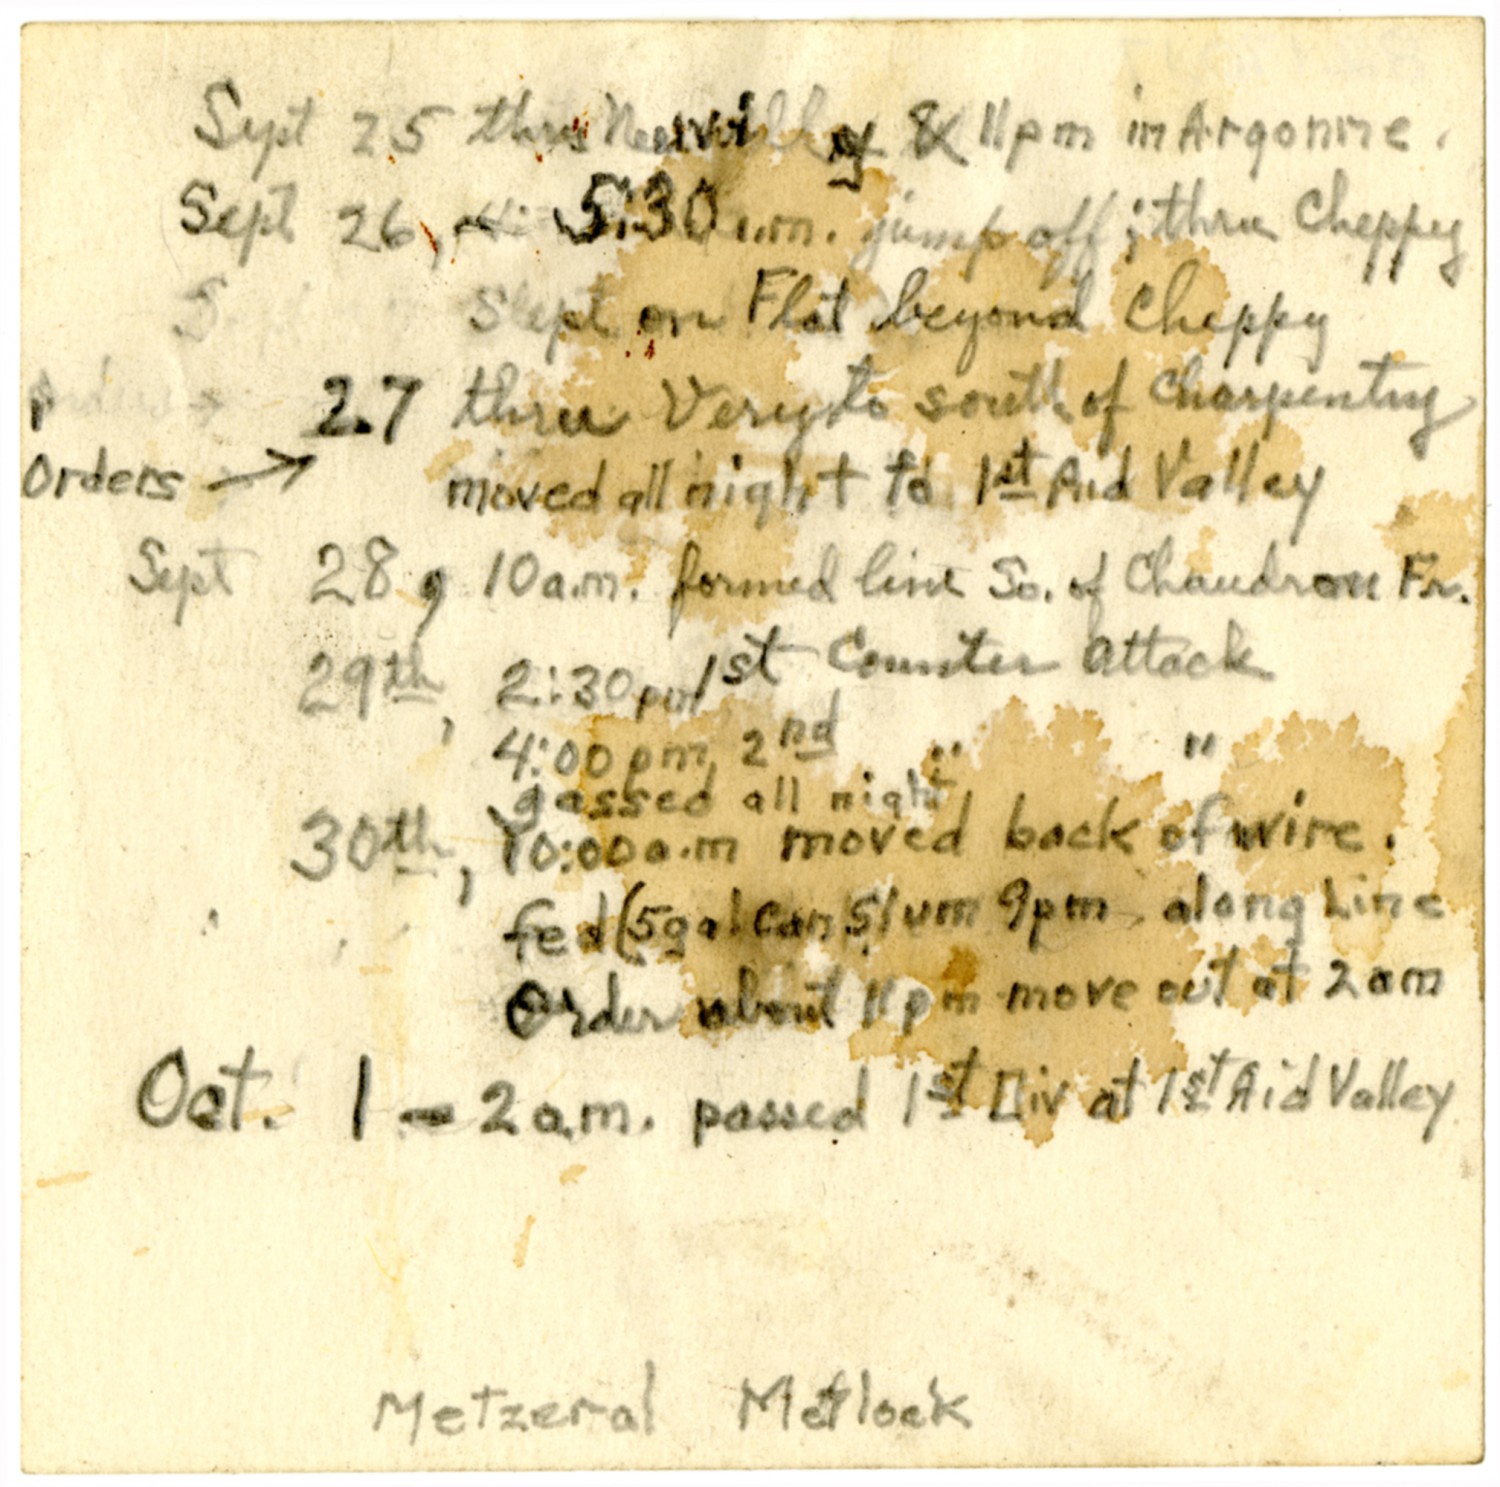 Sept 25 thru Neuvilly & 11pm in Argonne.
Sept 26, 5:30 a.m. jump off; thru Cheppy
Slept on Flat beyond Cheppy
27 thru Very to south of Charpentry
Orders → moved all night to 1st Aid Valley
Sept 28, 10 a.m. formed line So. of Chaudron Fr.
29th, 2:30pm 1st Counter attack
4:00 pm, 2nd " "
gassed all night
30th, 10:00 a.m moved back of wire.
fed (5 gal can slum 9pm along Line
Order about 11pm move out at 2am
Oct. 1 - 2 a.m. passed 1st Div at 1st Aid Valley
Metzeral Metlock